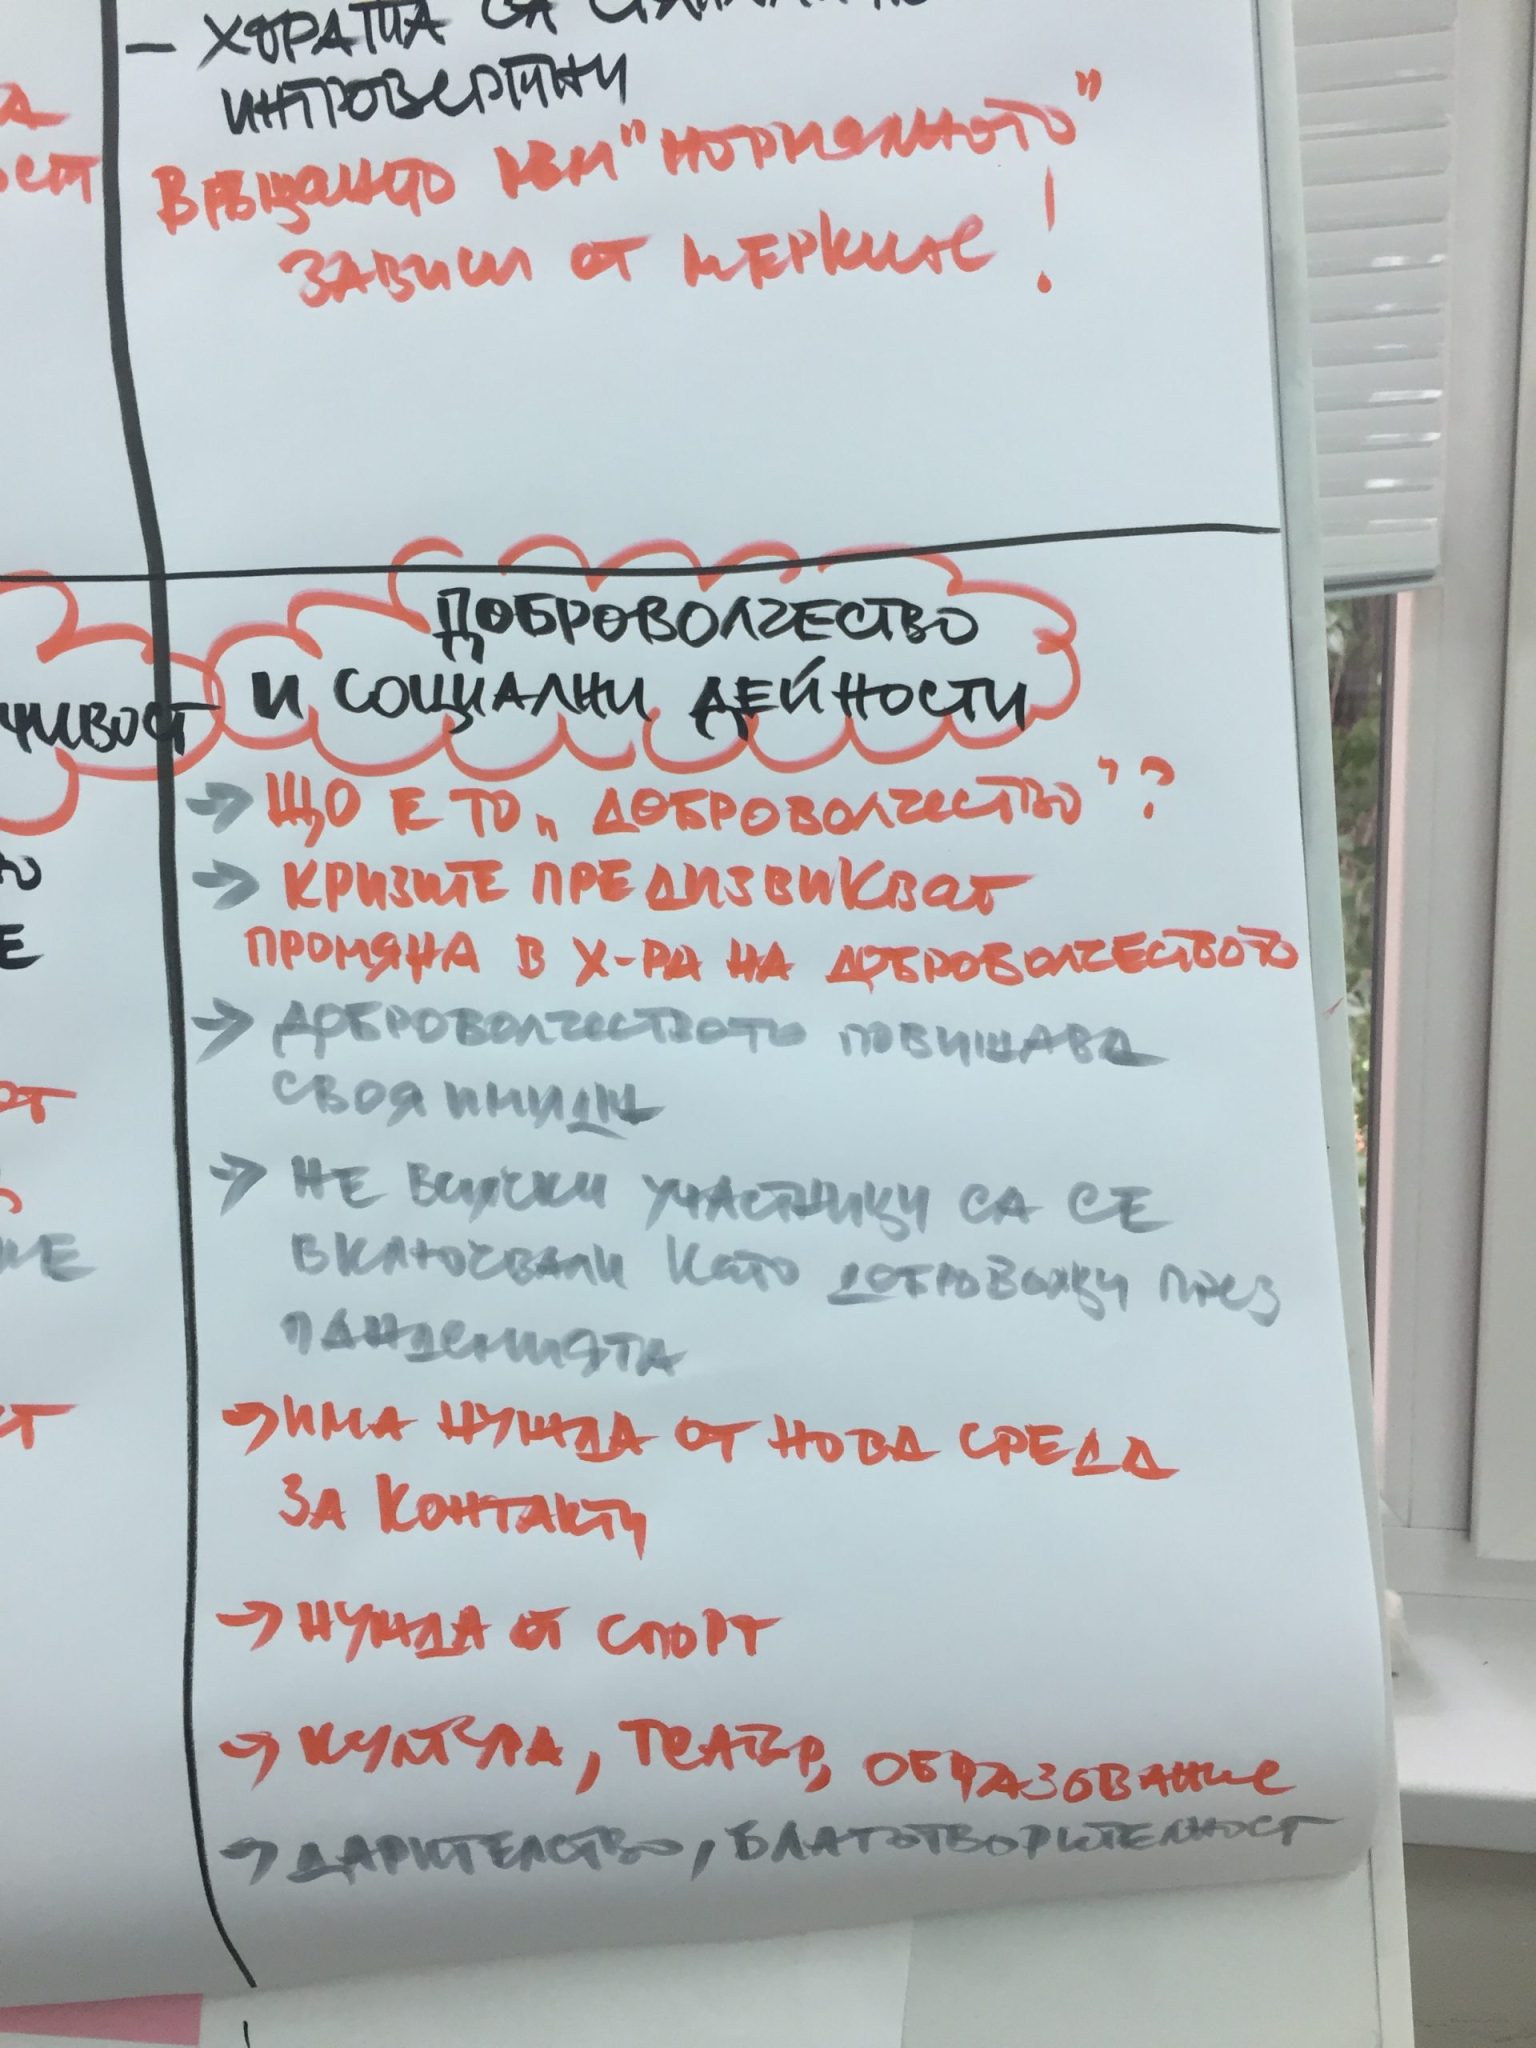 - ХОРАТА СА
ИНТРОВЕРТНИ
ВРЪЩАНЕТО КЪМ "НОРМАЛНОТО"
ЗАВИСИ ОТ МЕРКИТЕ !
ДОБРОВОЛЧЕСТВО
И СОЦИАЛНИ ДЕЙНОСТИ
ЧИВОСТ
→ ЩО Е ТО „ДОБРОВОЛЧЕСТВО"?
→ КРИЗИТЕ ПРЕДИЗВИКВАТ
ПРОМЯНА В Х-РА НА ДОБРОВОЛЧЕСТВОТО
→ ДОБРОВОЛЧЕСТВОТО ПОВИШАВА
СВОЯ ИМИДЖ
→ НЕ ВСИЧКИ УЧАСТНИЦИ СА СЕ
ВКЛЮЧВАЛИ КАТО ДОБРОВОЛЦИ ПРЕЗ
ПАНДЕМИЯТА
→ ИМА НУЖДА ОТ НОВА СРЕДА
ЗА КОНТАКТИ
→ НУЖДА ОТ СПОРТ
→ КУЛТУРА, ТЕАТЪР, ОБРАЗОВАНИЕ
→ ДАРИТЕЛСТВО, БЛАГОТВОРИТЕЛНОСТ